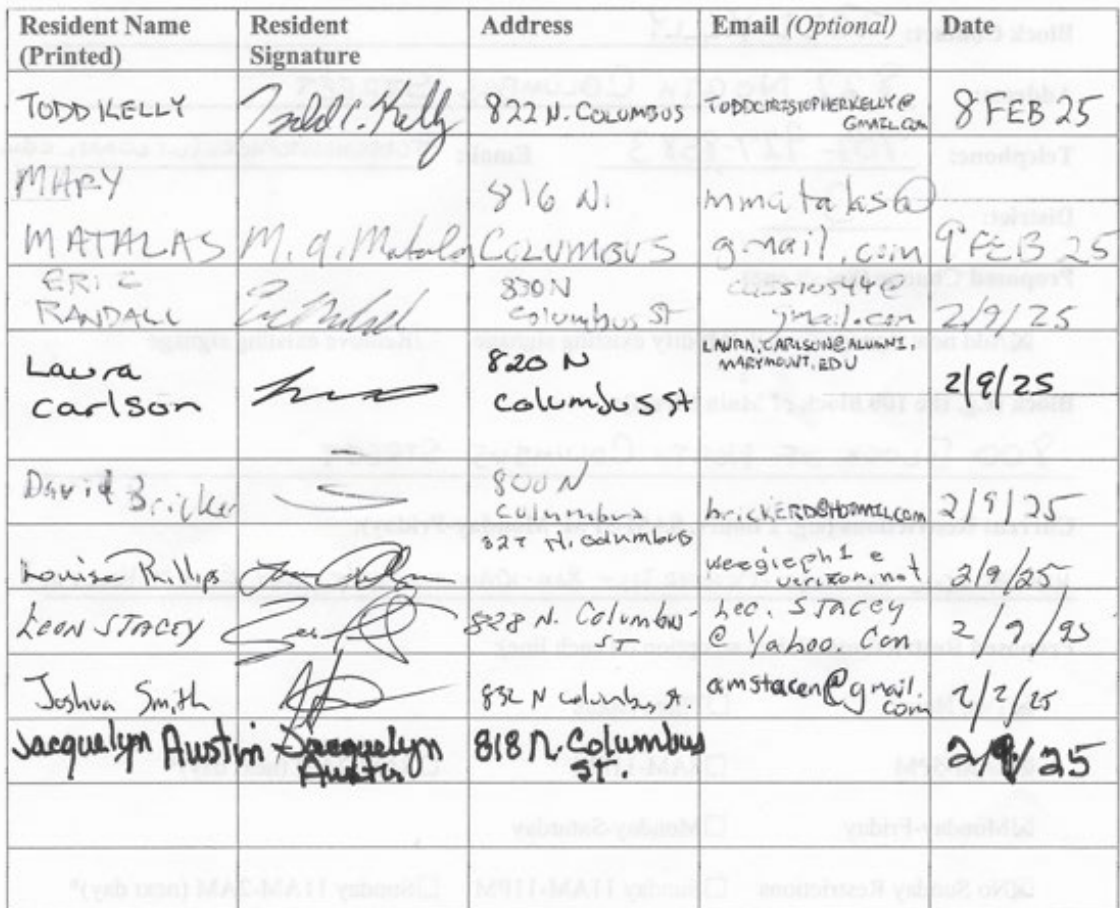 Resident Name (Printed) Resident Signature Address Email (Optional) Date
TODD KELLY Todd C. Kelly 822 N. COLUMBUS TODDCHRISTOPHERKELLY@GMAIL.COM 8 FEB 25
MARY MATALAS M. A. Matalas 816 N. COLUMBUS mmatalas@gmail.com 9 FEB 25
ERIC RANDALL 830 N Columbus St gmail.com 2/9/25
Laura Carlson 820 N Columbus St LAURA.CARLSON@ALUMNI.MARYMOUNT.EDU 2/9/25
David Bricker 800 N Columbus brickERD@HOTMAIL.com 2/9/25
Louise Phillips N. Columbus weegieph1@verizon.net 2/9/25
LEON STACEY 828 N. Columbus ST Leo.STACEY@Yahoo.Com 2/9/25
Joshua Smith 832 N Columbus St. amstacen@gmail.com 2/2/25
Jacquelyn Austin Jacquelyn Austin 818 N. Columbus St. 2/9/25